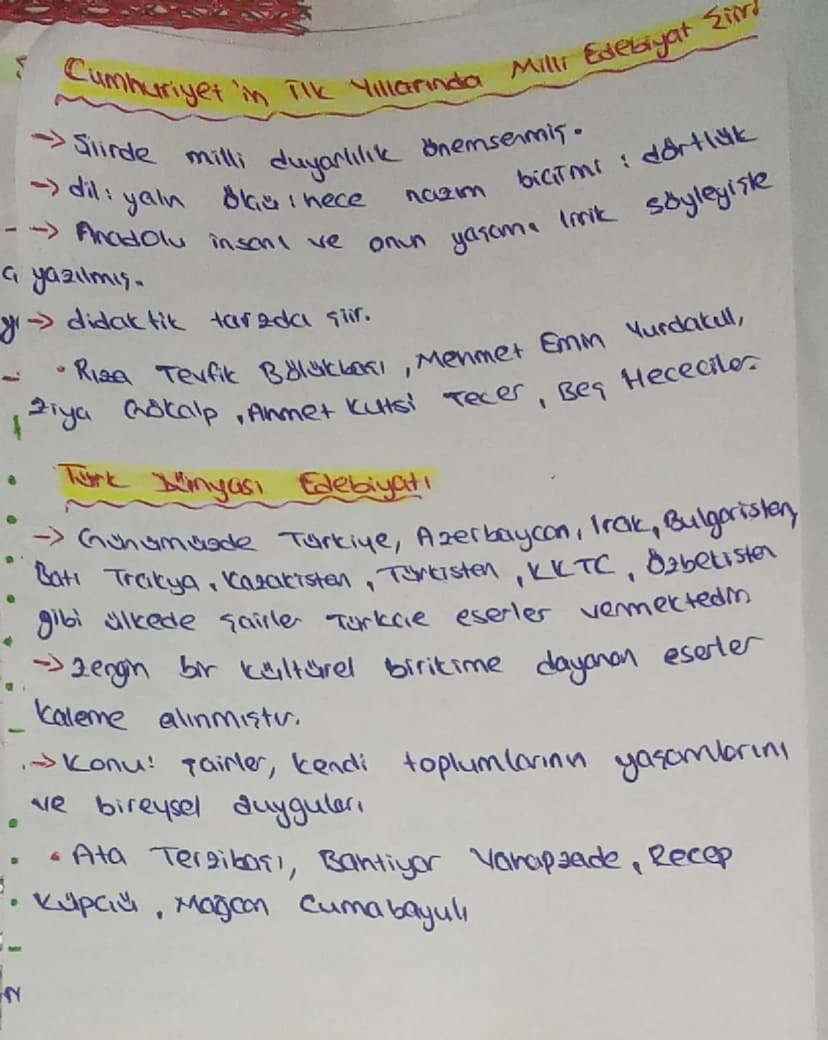 Cumhuriyet'in İlk Yıllarında Milli Edebiyat Şiiri
→ Şiirde milli duyarlılık önemsenmiş.
→ dil: yalın ölçü: hece nazım biçimi: dörtlük
→ Anadolu insanı ve onun yaşamı lirik söyleyişle
yazılmış.
→ didaktik tarzda şiir.
• Rıza Tevfik Bölükbaşı, Mehmet Emin Yurdakul,
Ziya Gökalp, Ahmet Kutsi Tecer, Beş Hececiler
Türk Dünyası Edebiyatı
→ Günümüzde Türkiye, Azerbaycan, Irak, Bulgaristan,
Batı Trakya, Kazakistan, Türkistan, KKTC, Özbekistan
gibi ülkede şairler Türkçe eserler vermektedir
→ zengin bir kültürel birikime dayanan eserler
kaleme alınmıştır.
→ Konu: şairler, kendi toplumlarının yaşamlarını
ve bireysel duyguları
• Ata Terzibaşı, Bahtiyar Vahapzade, Recep
Küpçü, Mağcan Cumabayulı